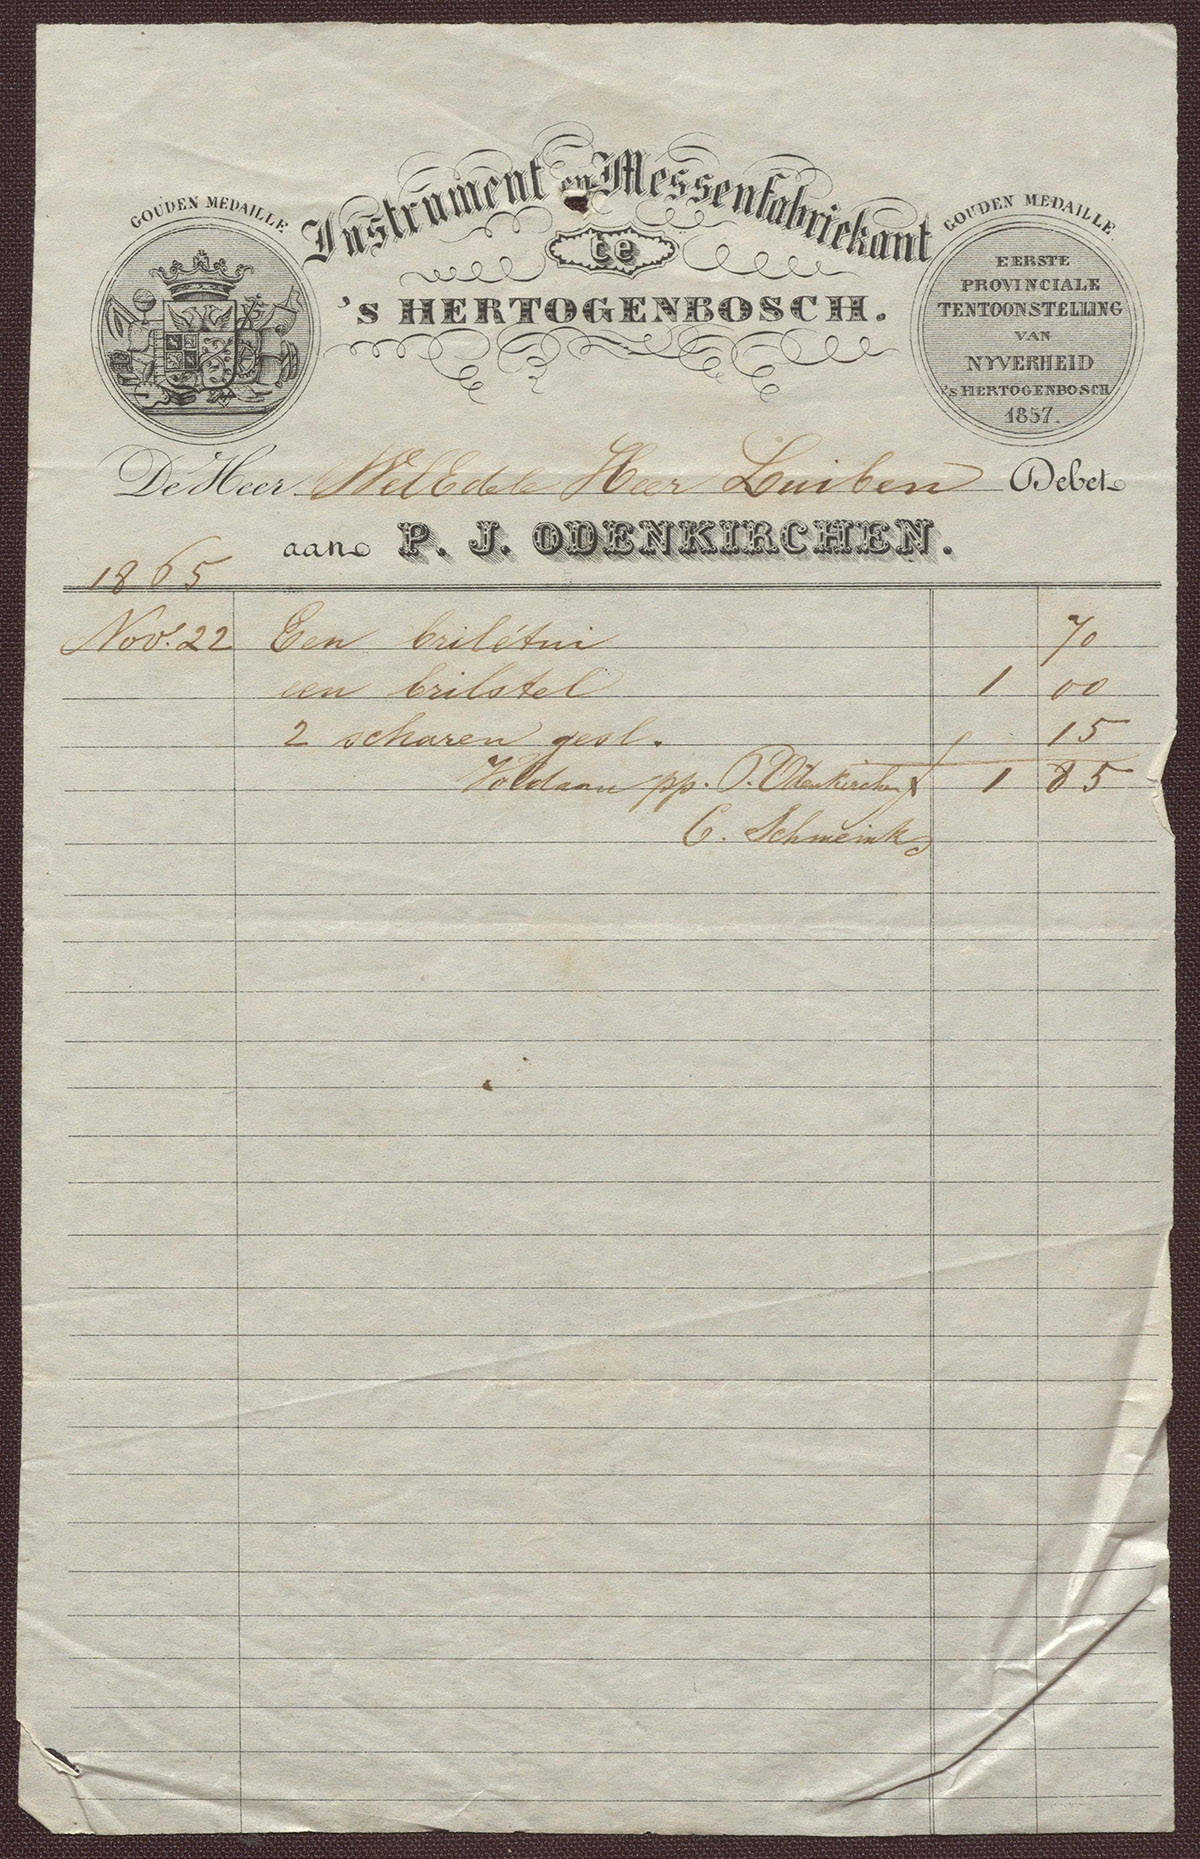 GOUDEN MEDAILLE
Instrument en Messenfabriekant
te
's HERTOGENBOSCH.
GOUDEN MEDAILLE.
EERSTE
PROVINCIALE
TENTOONSTELLING
VAN
NYVERHEID
's HERTOGENBOSCH
1857.
De Heer WelEdele Heer Luiben Debet
aan P. J. ODENKIRCHEN.
1865
Nov. 22 Een briletui 70
een brilstel 1 00
2 scharen gesl. 15
Voldaan pp. P. Odenkirchen f 1 85
C. Schmeink